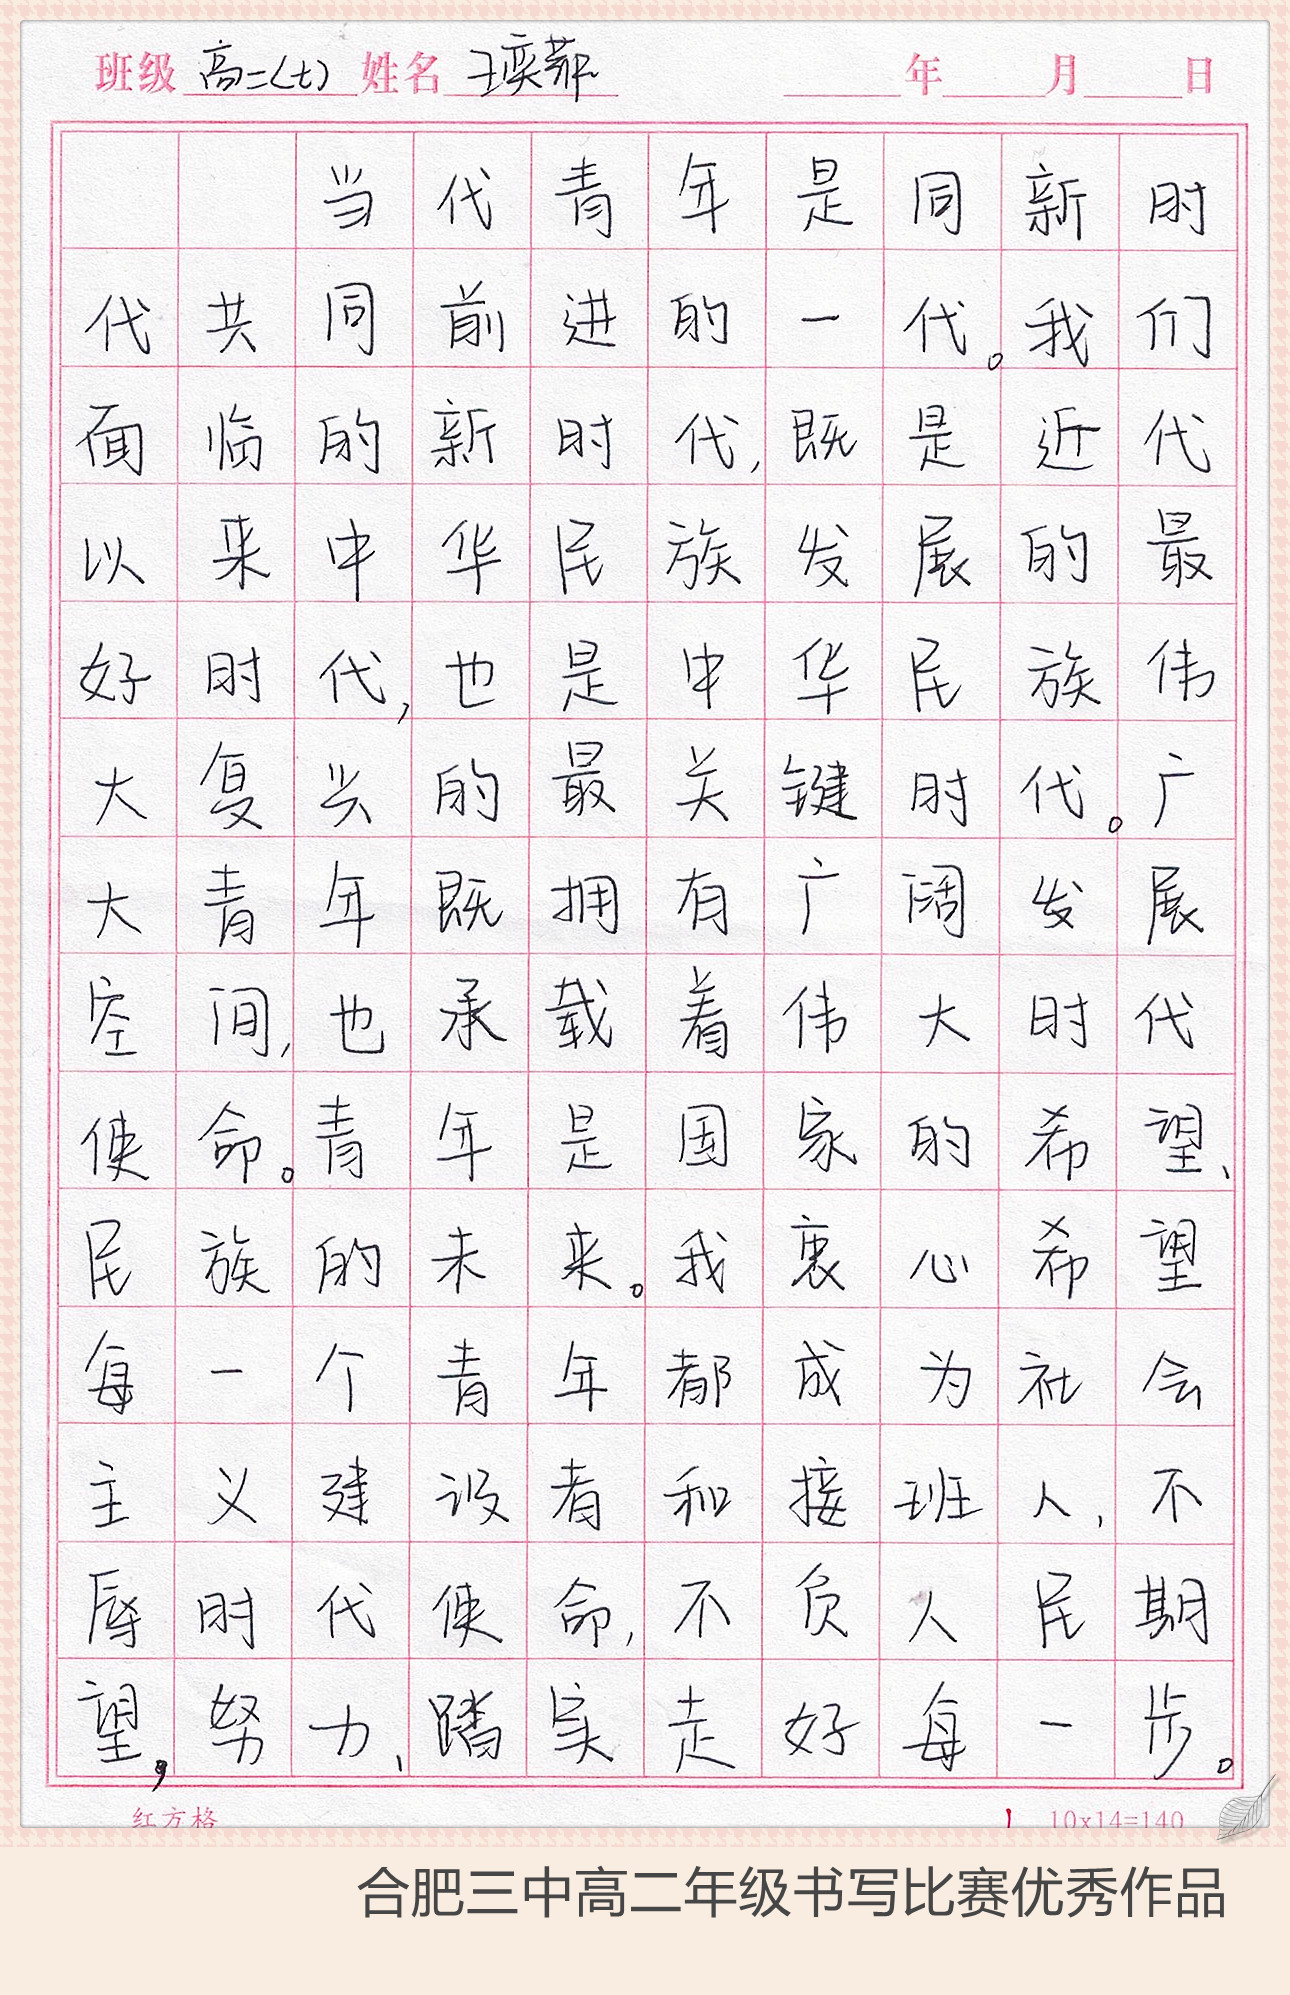 班级 高二(七) 姓名 王奕 年 月 日
当代青年是同新时
代共同前进的一代。我们
面临的新时代,既是近代
以来中华民族发展的最
好时代,也是中华民族伟
大复兴的最关键时代。广
大青年既拥有广阔发展
空间,也承载着伟大时代
使命。青年是国家的希望、
民族的未来。我衷心希望
每一个青年都成为社会
主义建设者和接班人,不
辱时代使命,不负人民期
望,努力、踏实走好每一步。
红方格 1 10x14=140
合肥三中高二年级书写比赛优秀作品